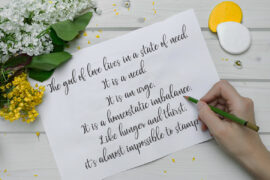 The god of love lives in a state of need.
It is a need.
It is an urge.
It is a homeostatic imbalance.
Like hunger and thirst,
it's almost impossible to stamp